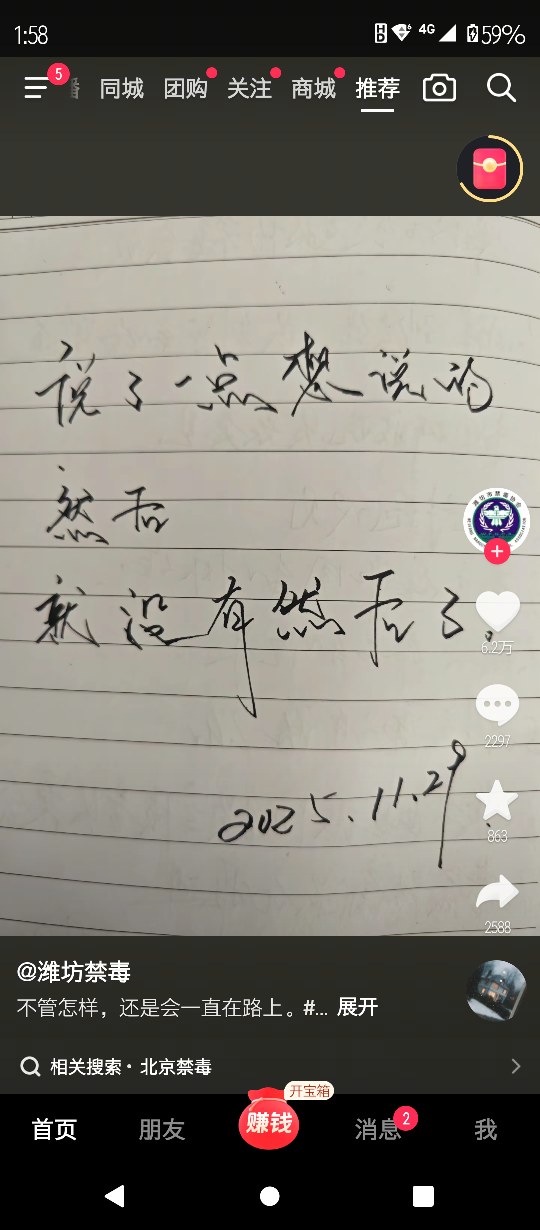 1:58
4G
59%
5
播 同城 团购 关注 商城 推荐
说了一点想说的
然后
就没有然后了。
2025.11.29
6.2万
2297
863
2588
@潍坊禁毒
不管怎样，还是会一直在路上。#... 展开
相关搜索· 北京禁毒
开宝箱
首页 朋友 赚钱 消息 2 我